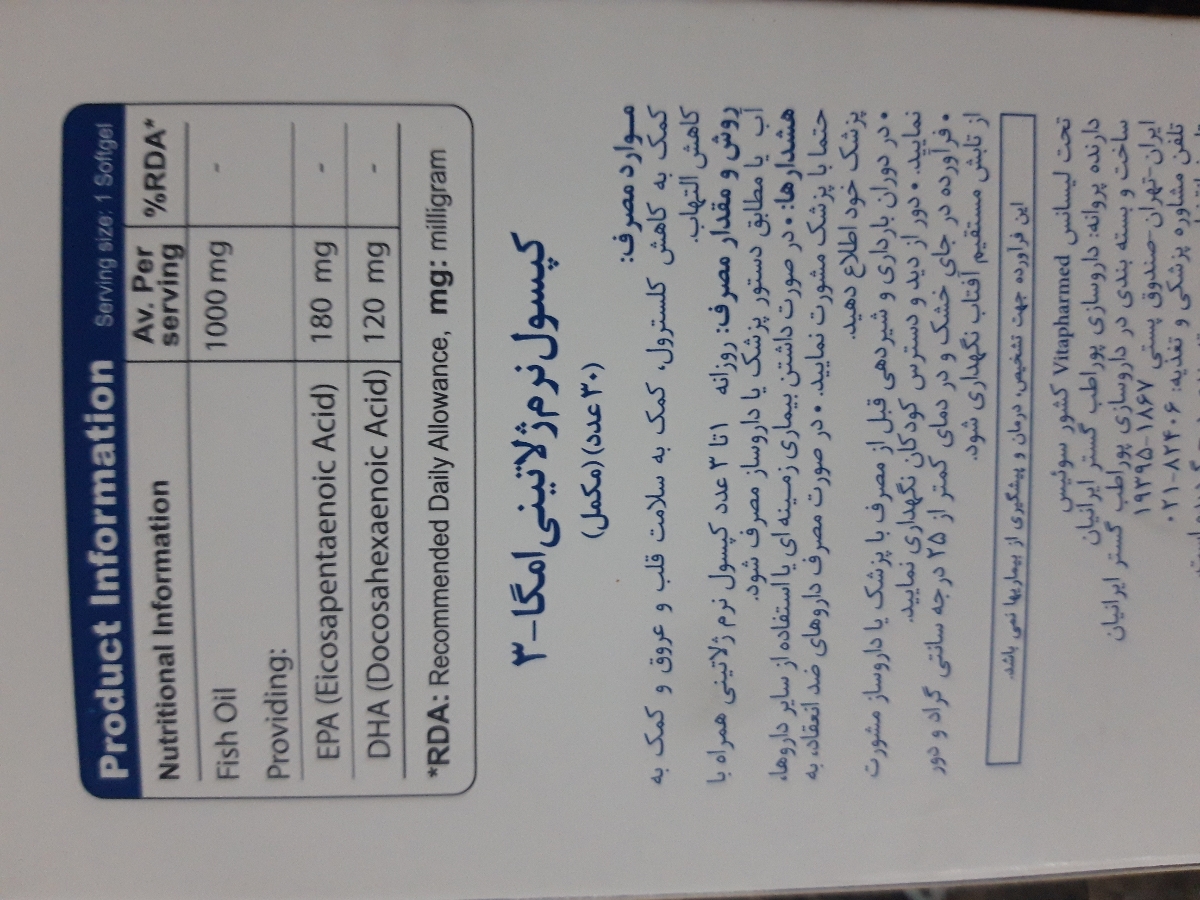 Product Information Serving size: 1 Softgel
Nutritional Information Av. Per serving %RDA*
Fish Oil 1000 mg -
Providing:
EPA (Eicosapentaenoic Acid) 180 mg -
DHA (Docosahexaenoic Acid) 120 mg -
*RDA: Recommended Daily Allowance, mg: milligram
کپسول نرم ژلاتینی امگا-۳
(۳۰ عدد) (مکمل)
موارد مصرف:
کمک به کاهش کلسترول، کمک به سلامت قلب و عروق و کمک به
کاهش التهاب.
روش و مقدار مصرف: روزانه ۱ تا ۳ عدد کپسول نرم ژلاتینی همراه با
آب یا مطابق دستور پزشک یا داروساز مصرف شود.
هشدارها: • در صورت داشتن بیماری زمینه ای یا استفاده از سایر داروها،
حتما با پزشک مشورت نمایید. • در صورت مصرف داروهای ضد انعقاد، به
پزشک خود اطلاع دهید.
• در دوران بارداری و شیردهی قبل از مصرف با پزشک یا داروساز مشورت
نمایید. • دور از دید و دسترس کودکان نگهداری نمایید.
• فرآورده در جای خشک و در دمای کمتر از ۲۵ درجه سانتی گراد و دور
از تابش مستقیم آفتاب نگهداری شود.
این فرآورده جهت تشخیص، درمان و پیشگیری از بیماریها نمی باشد.
تحت لیسانس Vitapharmed کشور سوئیس
دارنده پروانه: داروسازی پوراطب گستر ایرانیان
ساخت و بسته بندی در داروسازی پوراطب گستر ایرانیان
ایران-تهران-صندوق پستی ۱۸۶۷-۱۹۳۹۵
تلفن مشاوره پزشکی و تغذیه: ۸۲۴۰۶-۰۲۱